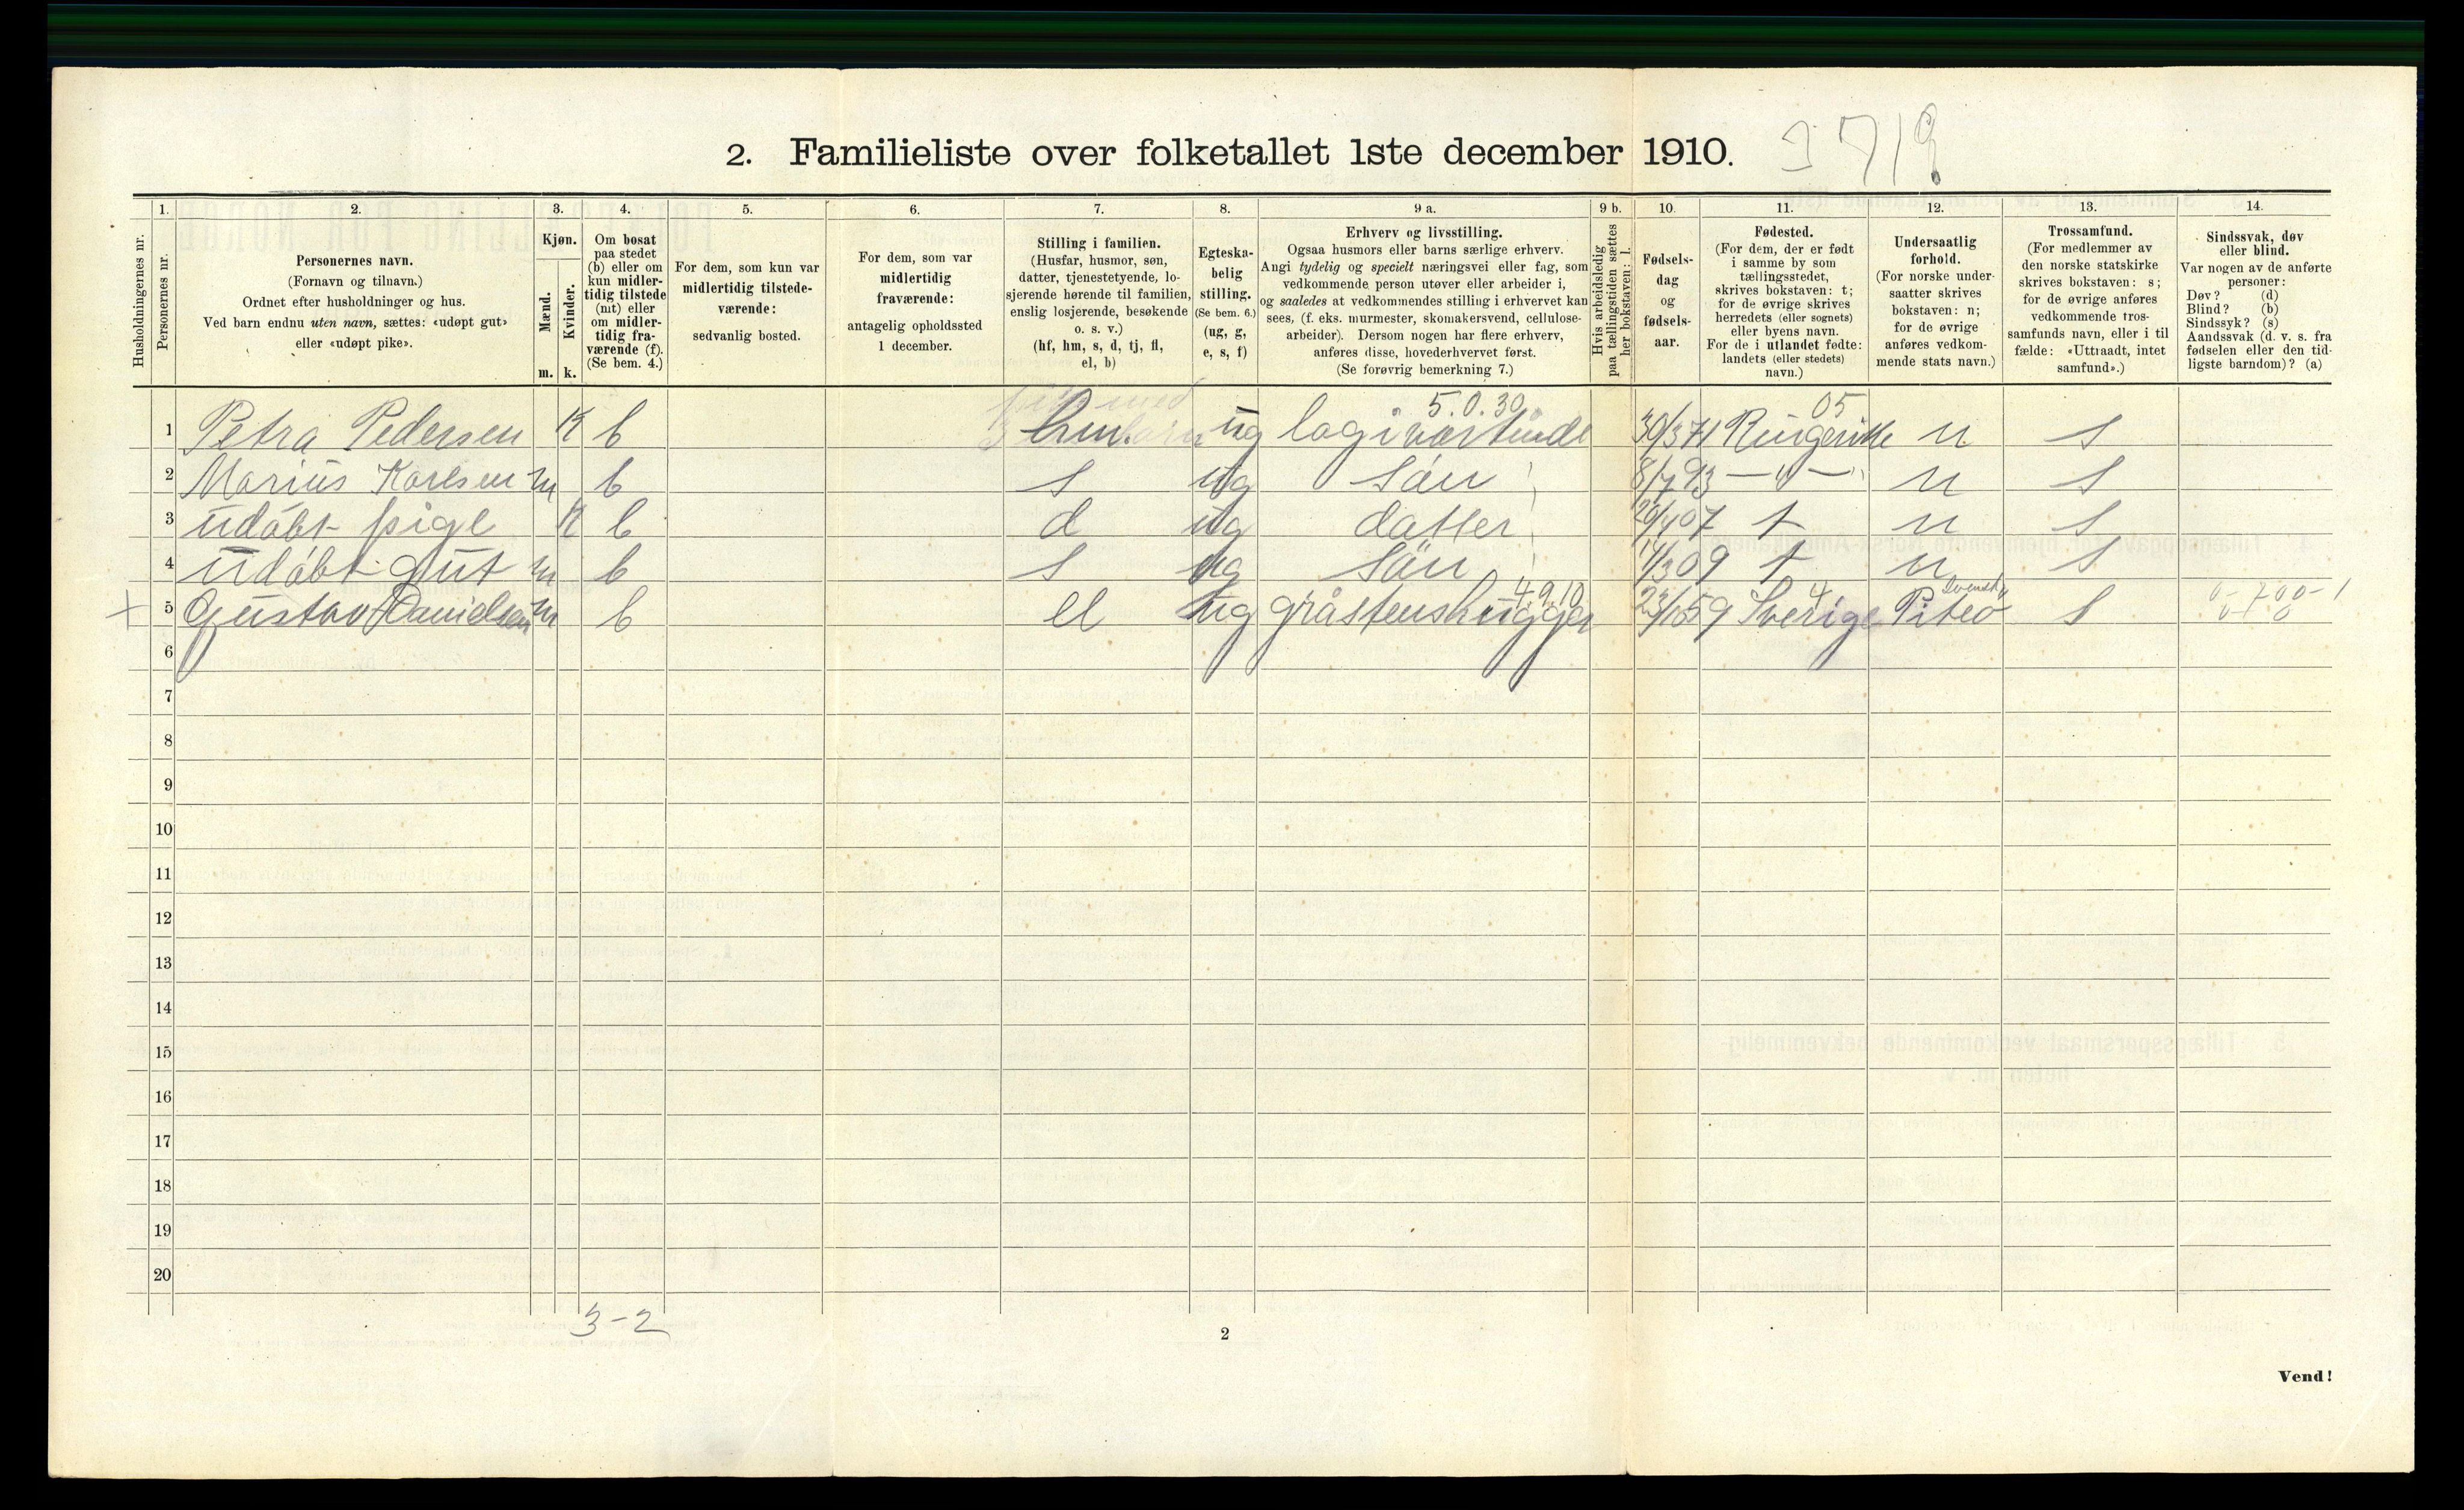 2. Familieliste over folketallet 1ste december 1910.
1. 2. 3. 4. 5. 6. 7. 8. 9 a. 9 b. 10. 11. 12. 13. 14.
Husholdningernes nr.
Personernes nr.
Personernes navn.
(Fornavn og tilnavn.)
Ordnet efter husholdninger og hus.
Ved barn endnu uten navn, sættes: «udøpt gut»
eller «udøpt pike».
Kjøn.
Mænd.
Kvinder.
m. k.
Om bosat
paa stedet
(b) eller om
kun midler-
tidig tilstede
(mt) eller
om midler-
tidig fra-
værende (f).
(Se bem. 4.)
For dem, som kun var
midlertidig tilstede-
værende:
sedvanlig bosted.
For dem, som var
midlertidig
fraværende:
antagelig opholdssted
1 december.
Stilling i familien.
(Husfar, husmor, søn,
datter, tjenestetyende, lo-
sjerende hørende til familien,
enslig losjerende, besøkende
o. s. v.)
(hf, hm, s, d, tj, fl,
el, b)
Egteska-
belig
stilling.
(Se bem. 6.)
(ug, g,
e, s, f)
Erhverv og livsstilling.
Ogsaa husmors eller barns særlige erhverv.
Angi tydelig og specielt næringsvei eller fag, som
vedkommende person utøver eller arbeider i,
og saaledes at vedkommendes stilling i erhvervet kan
sees, (f. eks. murmester, skomakersvend, cellulose-
arbeider). Dersom nogen har flere erhverv,
anføres disse, hovederhvervet først.
(Se forøvrig bemerkning 7.)
Hvis arbeidsledig
paa tællingstiden sættes
her bokstaven: l.
Fødsels-
dag
og
fødsels-
aar.
Fødested.
(For dem, der er født
i samme by som
tællingsstedet,
skrives bokstaven: t;
for de øvrige skrives
herredets (eller sognets)
eller byens navn.
For de i utlandet fødte:
landets (eller stedets)
navn.)
Undersaatlig
forhold.
(For norske under-
saatter skrives
bokstaven: n;
for de øvrige
anføres vedkom-
mende stats navn.)
Trossamfund.
(For medlemmer av
den norske statskirke
skrives bokstaven: s;
for de øvrige anføres
vedkommende tros-
samfunds navn, eller i til
fælde: «Uttraadt, intet
samfund».)
Sindssvak, døv
eller blind.
Var nogen av de anførte
personer:
Døv? (d)
Blind? (b)
Sindssyk? (s)
Aandssvak (d. v. s. fra
fødselen eller den tid-
ligste barndom)? (a)
5.0.30 05
1 Petra Pedersen K b hm. ug logivertinde 30/3 71 Ringerike n s
2 Marius Karlsen m b s ug sön 8/7 93 — " — n s
3 udöbt pige K b d ug datter 20/4 07 t n s
4 udöbt gut m b s ug sön 14/3 09 t n s
4910 4 Svensk
5 Gustav Danielsen m b el ug gråstenshugger Sverige Piteo s
6
7
8
9
10
11
12
13
14
15
16
17
18
19
20
3-2
2
Vend!